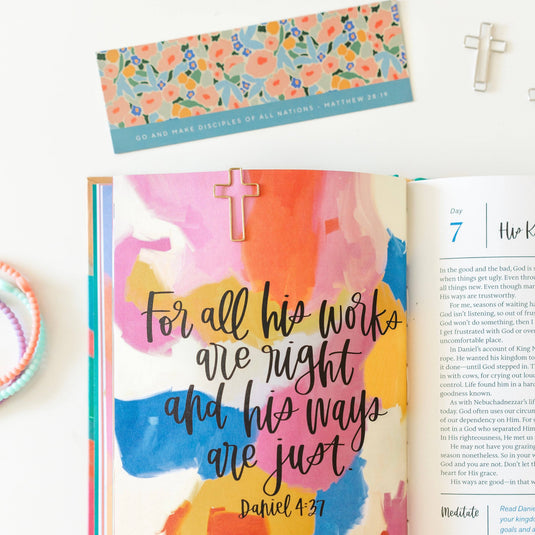 GO AND MAKE DISCIPLES OF ALL NATIONS - MATTHEW 28:19
For all his works
are right
and his ways
are just.
Daniel 4:37
Day
7
His K
In the good and the bad, God is
when things get ugly. Even throu
all things new. Even though man
His ways are trustworthy.
For me, seasons of waiting ha
God isn't listening, so out of frus
God won't do something, then I
I get frustrated with God or over
uncomfortable place.
In Daniel's account of King N
rope. He wanted his kingdom to
it done—until God stepped in. T
in with cows, for crying out loud
control. Life found him in a hard
goodness known.
As with Nebuchadnezzar's life
today. God often uses our circum
of our dependency on Him. For
not in a God who separated Him
In His righteousness, He met us
He may not have you grazing
season nonetheless. So in your w
God and you are not. Don't let th
heart for His grace.
His ways are good—in that w
Meditate
Read Danie
your kingdo
goals and a